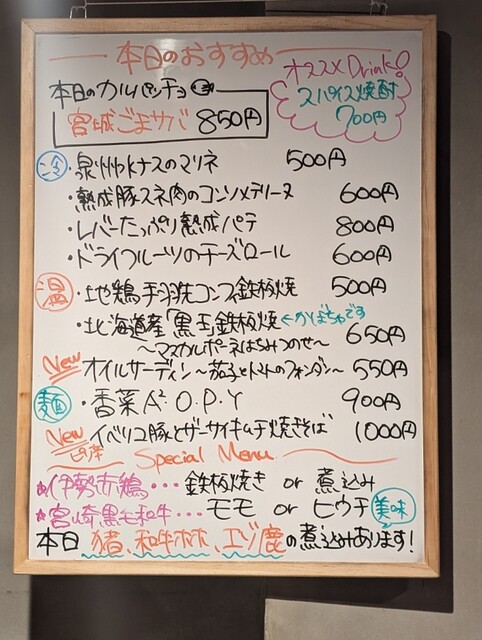 本日のおすすめ
オススメDrink!
スパイス焼酎
700円
本日のカルパッチョ
宮城ごまサバ 850円
冷・泉州水ナスのマリネ 500円
・熟成豚スネ肉のコンソメテリーヌ 600円
・レバーたっぷり熟成パテ 800円
・ドライフルーツのチーズロール 600円
温・地鶏手羽先コンフィ鉄板焼 500円
・北海道産「黒玉鉄板焼←かぼちゃです
〜マスカルポーネはちみつのせ〜 650円
New オイルサーディン〜茄子とトマトのフォンダン〜 550円
麺・香菜A²O.P.Y 900円
New イベリコ豚とザーサイキムチ焼きそば 1000円
Special Menu
★伊勢赤鶏・・・鉄板焼き or 煮込み
★宮崎黒毛和牛・・・モモ or ヒウチ 美味
本日 猪、和牛ホホ、エゾ鹿の煮込みあります!